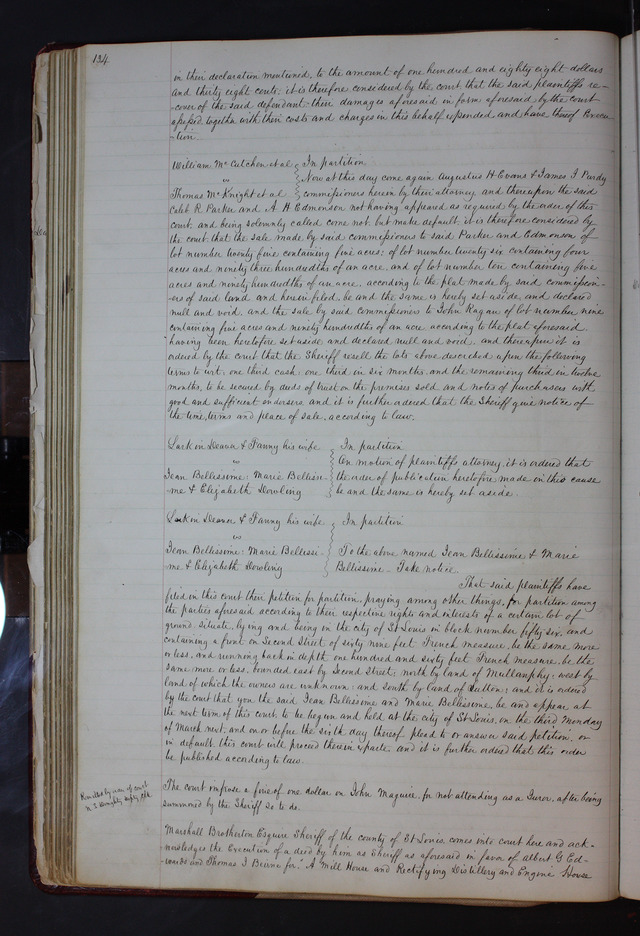 134
in their declaration mentioned, to the amount of one hundred and eighty eight dollars
and thirty eight cents; it is therefore considered by the court that the said plaintiffs re-
-cover of the said defendant their damages aforesaid in form aforesaid by the court
assessed together with their costs and charges in this behalf expended, and have thereof Execu
-tion.
William McCutchen et al
vs
Thomas McKnight et al
In partition
Now at this day come again Augustus H Evans & James J Purdy
commissioners herein by their attorney, and thereupon the said
Caleb R Parker and A. H Edmonson not having appeared as required by the order of this
court, and being solemnly called come not, but make default, it is therefore considered by
the court that the sale made by said commissioners to said Parker and Edmonson of
lot number twenty five containing five acres; of lot number twenty six containing four
acres and ninety three hundredths of an acre, and of lot number ten containing five
acres and ninety hundredths of an acre, according to the plat made by said commission-
-ers of said land and herein filed, be and the same is hereby set aside, and declared
null and void, and the sale by said commissioners to John Ragan of lot number nine
containing five acres and ninety hundredths of an acre according to the plat aforesaid
having been heretofore set aside and declared null and void, and thereupon it is
ordered by the court that the Sheriff resell the lots above described upon the following
terms to wit, one third cash, one third in six months, and the remaining third in twelve
months, to be secured by deeds of trust on the premises sold, and notes of purchasers with
good and sufficient endorsers, and it is further ordered that the Sheriff give notice of
the time, terms and place of sale, according to law.
Larkin Deaver & Fanny his wife
vs
Jean Bellissime, Marie Bellissi-
me & Elizabeth Dowling
In partition
On motion of plaintiffs attorney, it is ordered that
the order of publication heretofore made in this cause
be and the same is hereby set aside.
Larkin Deaver & Fanny his wife
vs
Jean Bellissime, Marie Bellissi-
me & Elizabeth Dowling
In partition
To the above named Jean Bellissime & Marie
Bellissime - Take notice
That said plaintiffs have
filed in this court their petition for partition, praying among other things, for partition among
the parties aforesaid according to their respective rights and interests of a certain lot of
ground, situate, lying and being in the city of St Louis in block number fifty six, and
containing a front on Second Street of sixty nine feet French measure, be the same more
or less, and running back in depth one hundred and sixty feet French measure, be the
same more or less, bounded east by Second Street; north by land of Mullanphy; west by
land of which the owners are unknown; and south by land of Sutton; and it is ordered
by the court that you, the said Jean Bellissime and Marie Bellissime, be and appear at
the next term of this court, to be begun and held at the city of St Louis, on the third Monday
of March next, and on or before the sixth day thereof plead to or answer said petition, or
in default this court will proceed therein exparte, and it is further ordered that this order
be published according to law.
Remitted by order of court
The court impose a fine of one dollar on John Maguire, for not attending as a Juror, after being
summoned by the Sheriff so to do.
Marshall Brotherton Esquire Sheriff of the county of St Louis, comes into court here and ack-
nowledges the Execution of a deed by him as Sheriff as aforesaid in favor of Albert G Ed-
wards and Thomas J Beirne for "A Mill House and Rectifying Distillery and Engine House